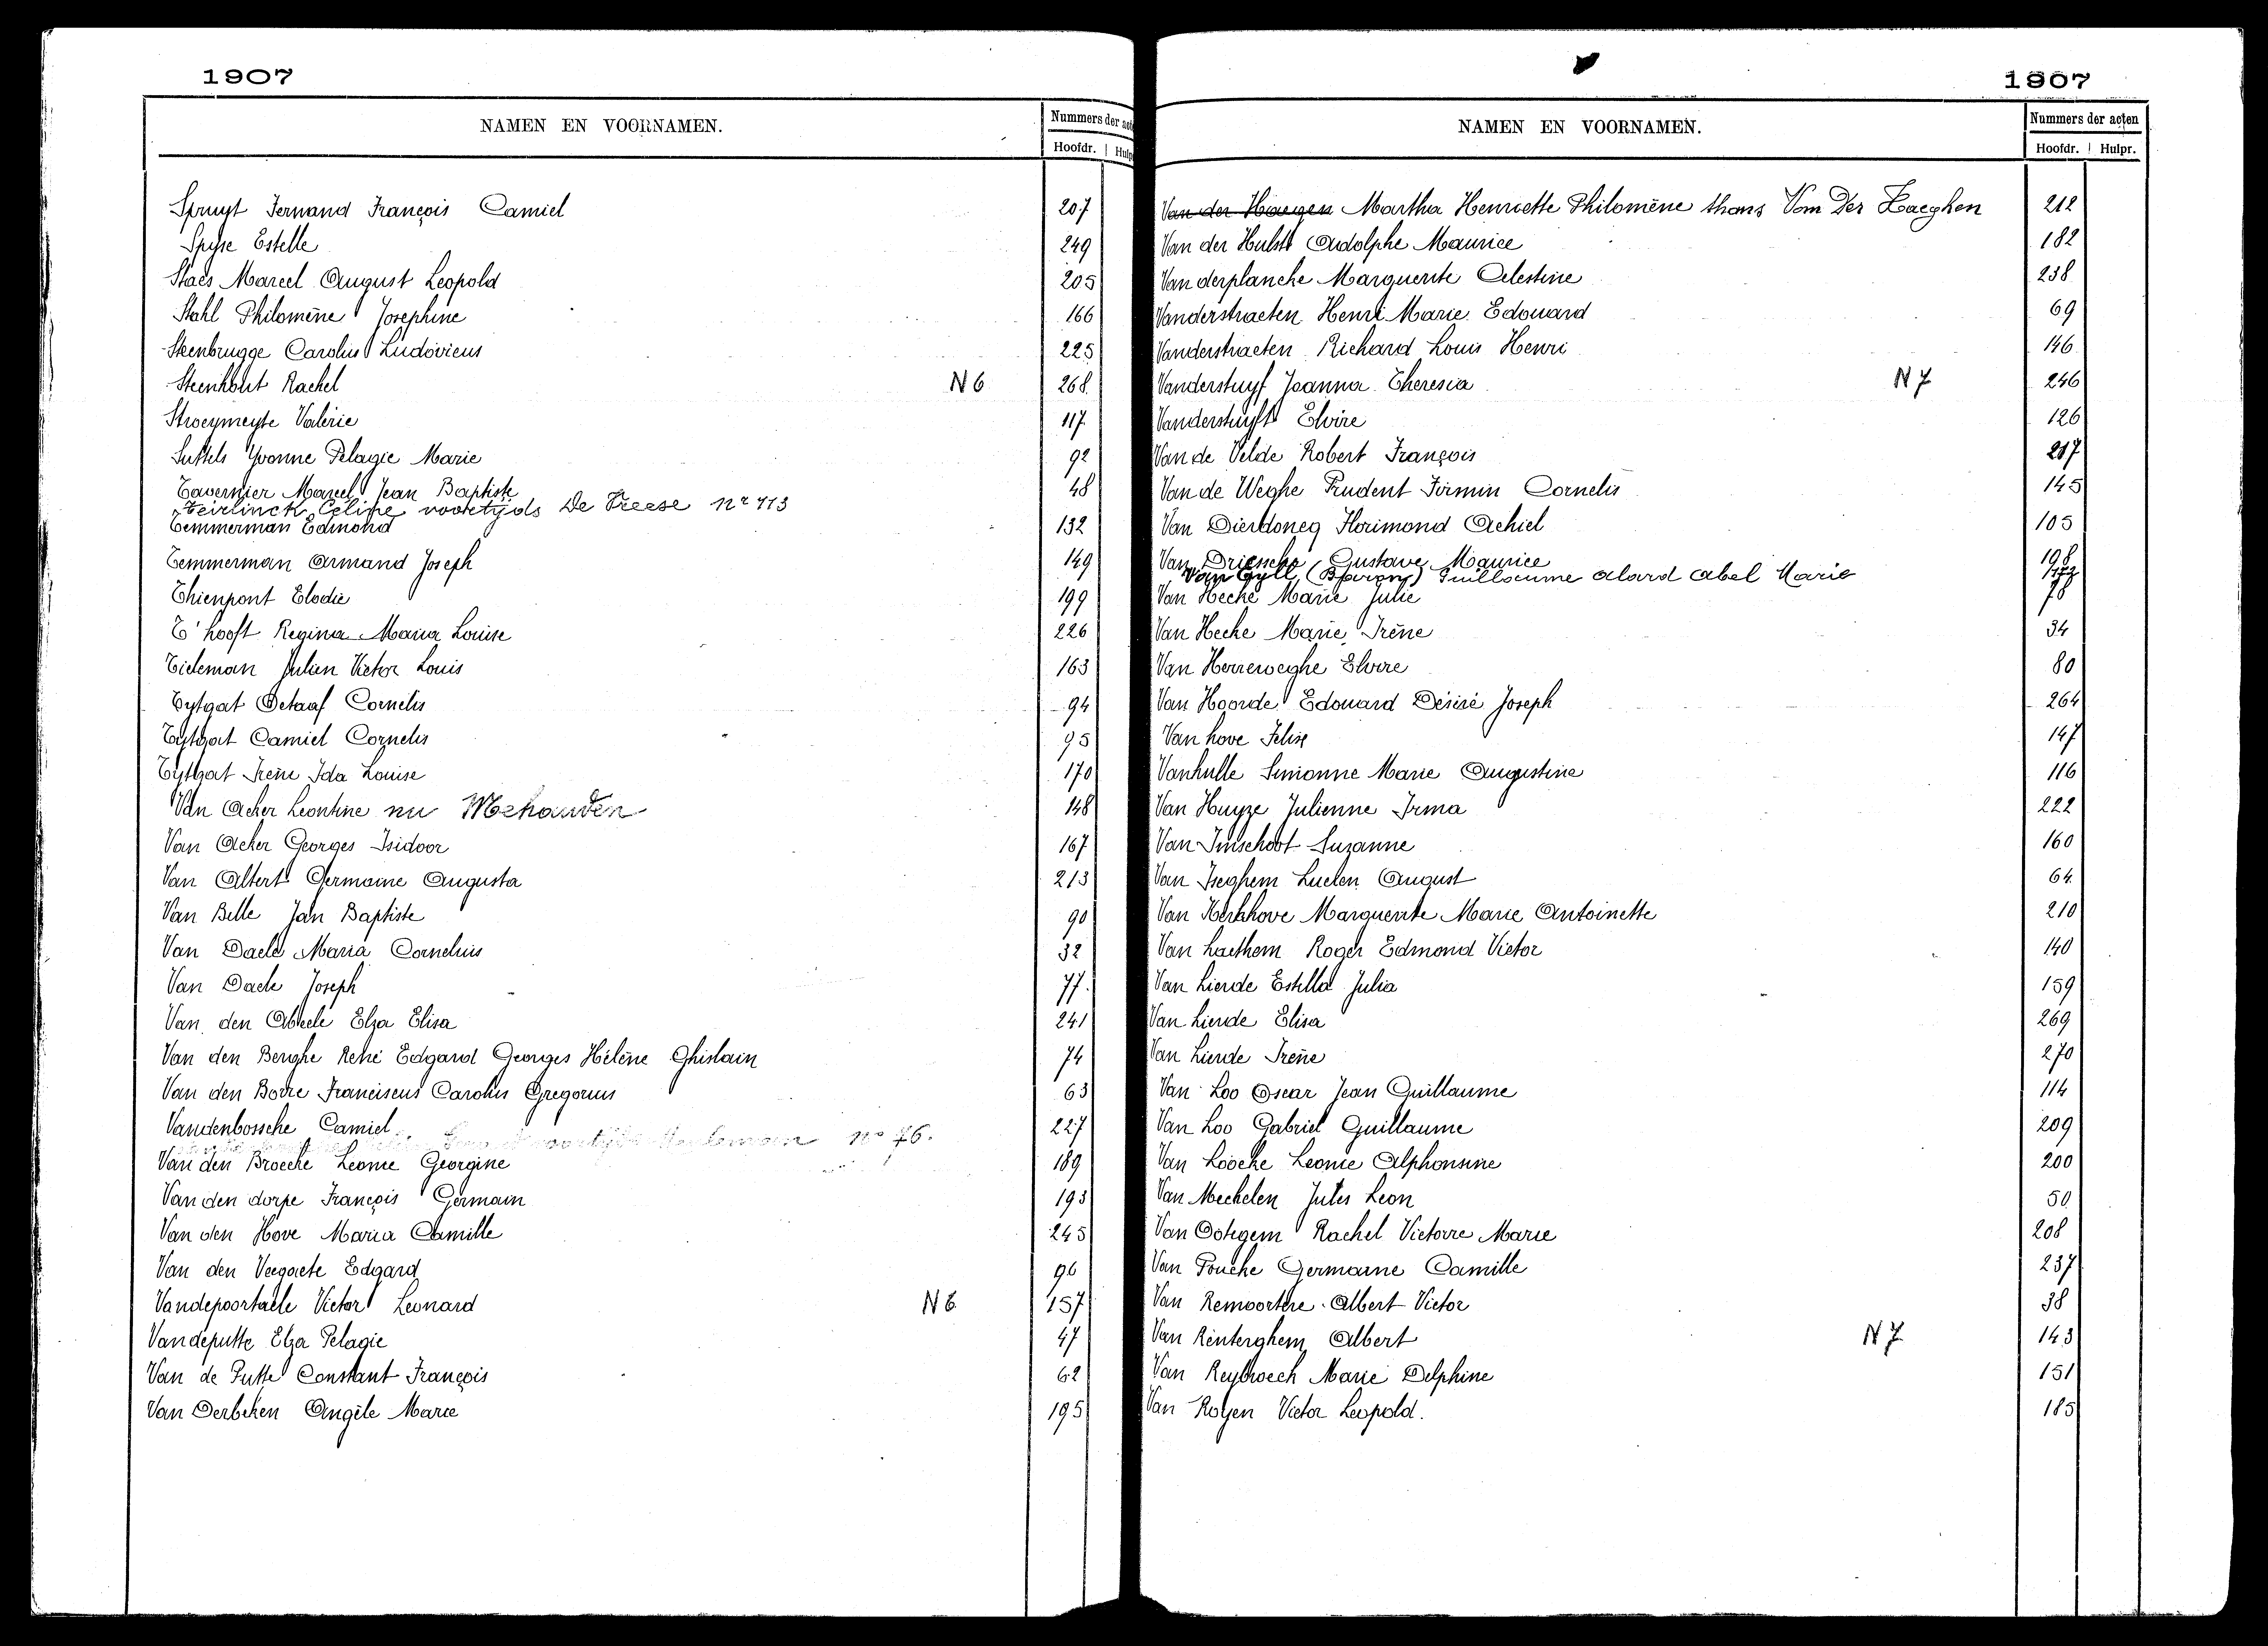 1907
NAMEN EN VOORNAMEN.
Nummers der
Hoofdr.
Spruyt Fernand François Camiel 207
Spijse Estelle 249
Staes Marcel August Leopold 205
Stahl Philomène Josephine 166
Steenbrugge Carolus Ludovicus 225
Steenhout Rachel N 6 268
Stroeymeyte Valérie 117
Suttels Yvonne Pelagie Marie 92
Tavernier Marcel Jean Baptiste 48
Teirlinck Celine voortijds De Vreese nr 113
Temmerman Edmond 132
Temmerman Armand Joseph 149
Thienpont Elodie 199
T'hooft Regina Maria Louise 226
Tieleman Julien Victor Louis 163
Tytgat Octaaf Cornelis 94
Tytgat Camiel Cornelis 95
Tytgat Irène Ida Louise 170
Van Acker Leontine nu 148
Van Acker Georges Isidoor 167
Van Altert Germaine Augusta 213
Van Belle Jan Baptiste 90
Van Daele Maria Cornelius 32
Van Daele Joseph 77
Van den Abeele Elza Elisa 241
Van den Berghe René Edgard Georges Hélène Ghislain 74
Van den Borre Franciscus Carolus Gregorius 63
Vandenbossche Camiel 227
voortijds no 76.
Van den Broecke Leonie Georgine 189
Van den dorpe François Germain 193
Van den Hove Maria Camille 245
Van den Veegaete Edgard 96
Vandepoortaele Victor Leonard N 6 157
Vandeputte Elza Pelagie 47
Van de Putte Constant François 62
Van Derbeken Angèle Marie 195
1907
NAMEN EN VOORNAMEN.
Nummers der acten
Hoofdr. Hulpr.
Van der Haegen Martha Henriette Philomène thans Van Der Haeghen 212
Van der Hulst Adolphe Maurice 182
Van derplancke Marguerite Celestine 238
Vanderstraeten Henri Marie Edouard 69
Vanderstraeten Richard Louis Henri 146
Vanderstuyf Joanna Theresia N 7 246
Vanderstuyft Elvire 126
Van de Velde Robert François 217
Van de Weghe Prudent Firmin Cornelis 145
Van Dierdoncq Florimond Achiel 105
Van Driessche Gustave Maurice 198
Van Gyll (Baron) Guillaume alard abel Marie
Van Hecke Marie Julie 78
Van Hecke Marie Irène 34
Van Herreweghe Elvire 80
Van Hoorde Edouard Désiré Joseph 264
Van hove Felix 147
Vanhulle Simonne Marie Augustine 116
Van Huyze Julienne Irma 222
Van Imschoot Suzanne 160
Van Iseghem Lucien August 64
Van Kerkhove Marguerite Marie Antoinette 210
Van Laethem Roger Edmond Victor 140
Van Lierde Estella Julia 159
Van Lierde Elisa 269
Van Lierde Irène 270
Van Loo Oscar Jean Guillaume 114
Van Loo Gabriel Guillaume 209
Van Loocke Leonie Alphonsine 200
Van Mechelen Jules Leon 50
Van Ootegem Rachel Victoire Marie 208
Van Poucke Germaine Camille 237
Van Remoortere Albert Victor 38
Van Renterghem Albert N 7 143
Van Reybroeck Marie Delphine 151
Van Royen Victor Leopold. 185